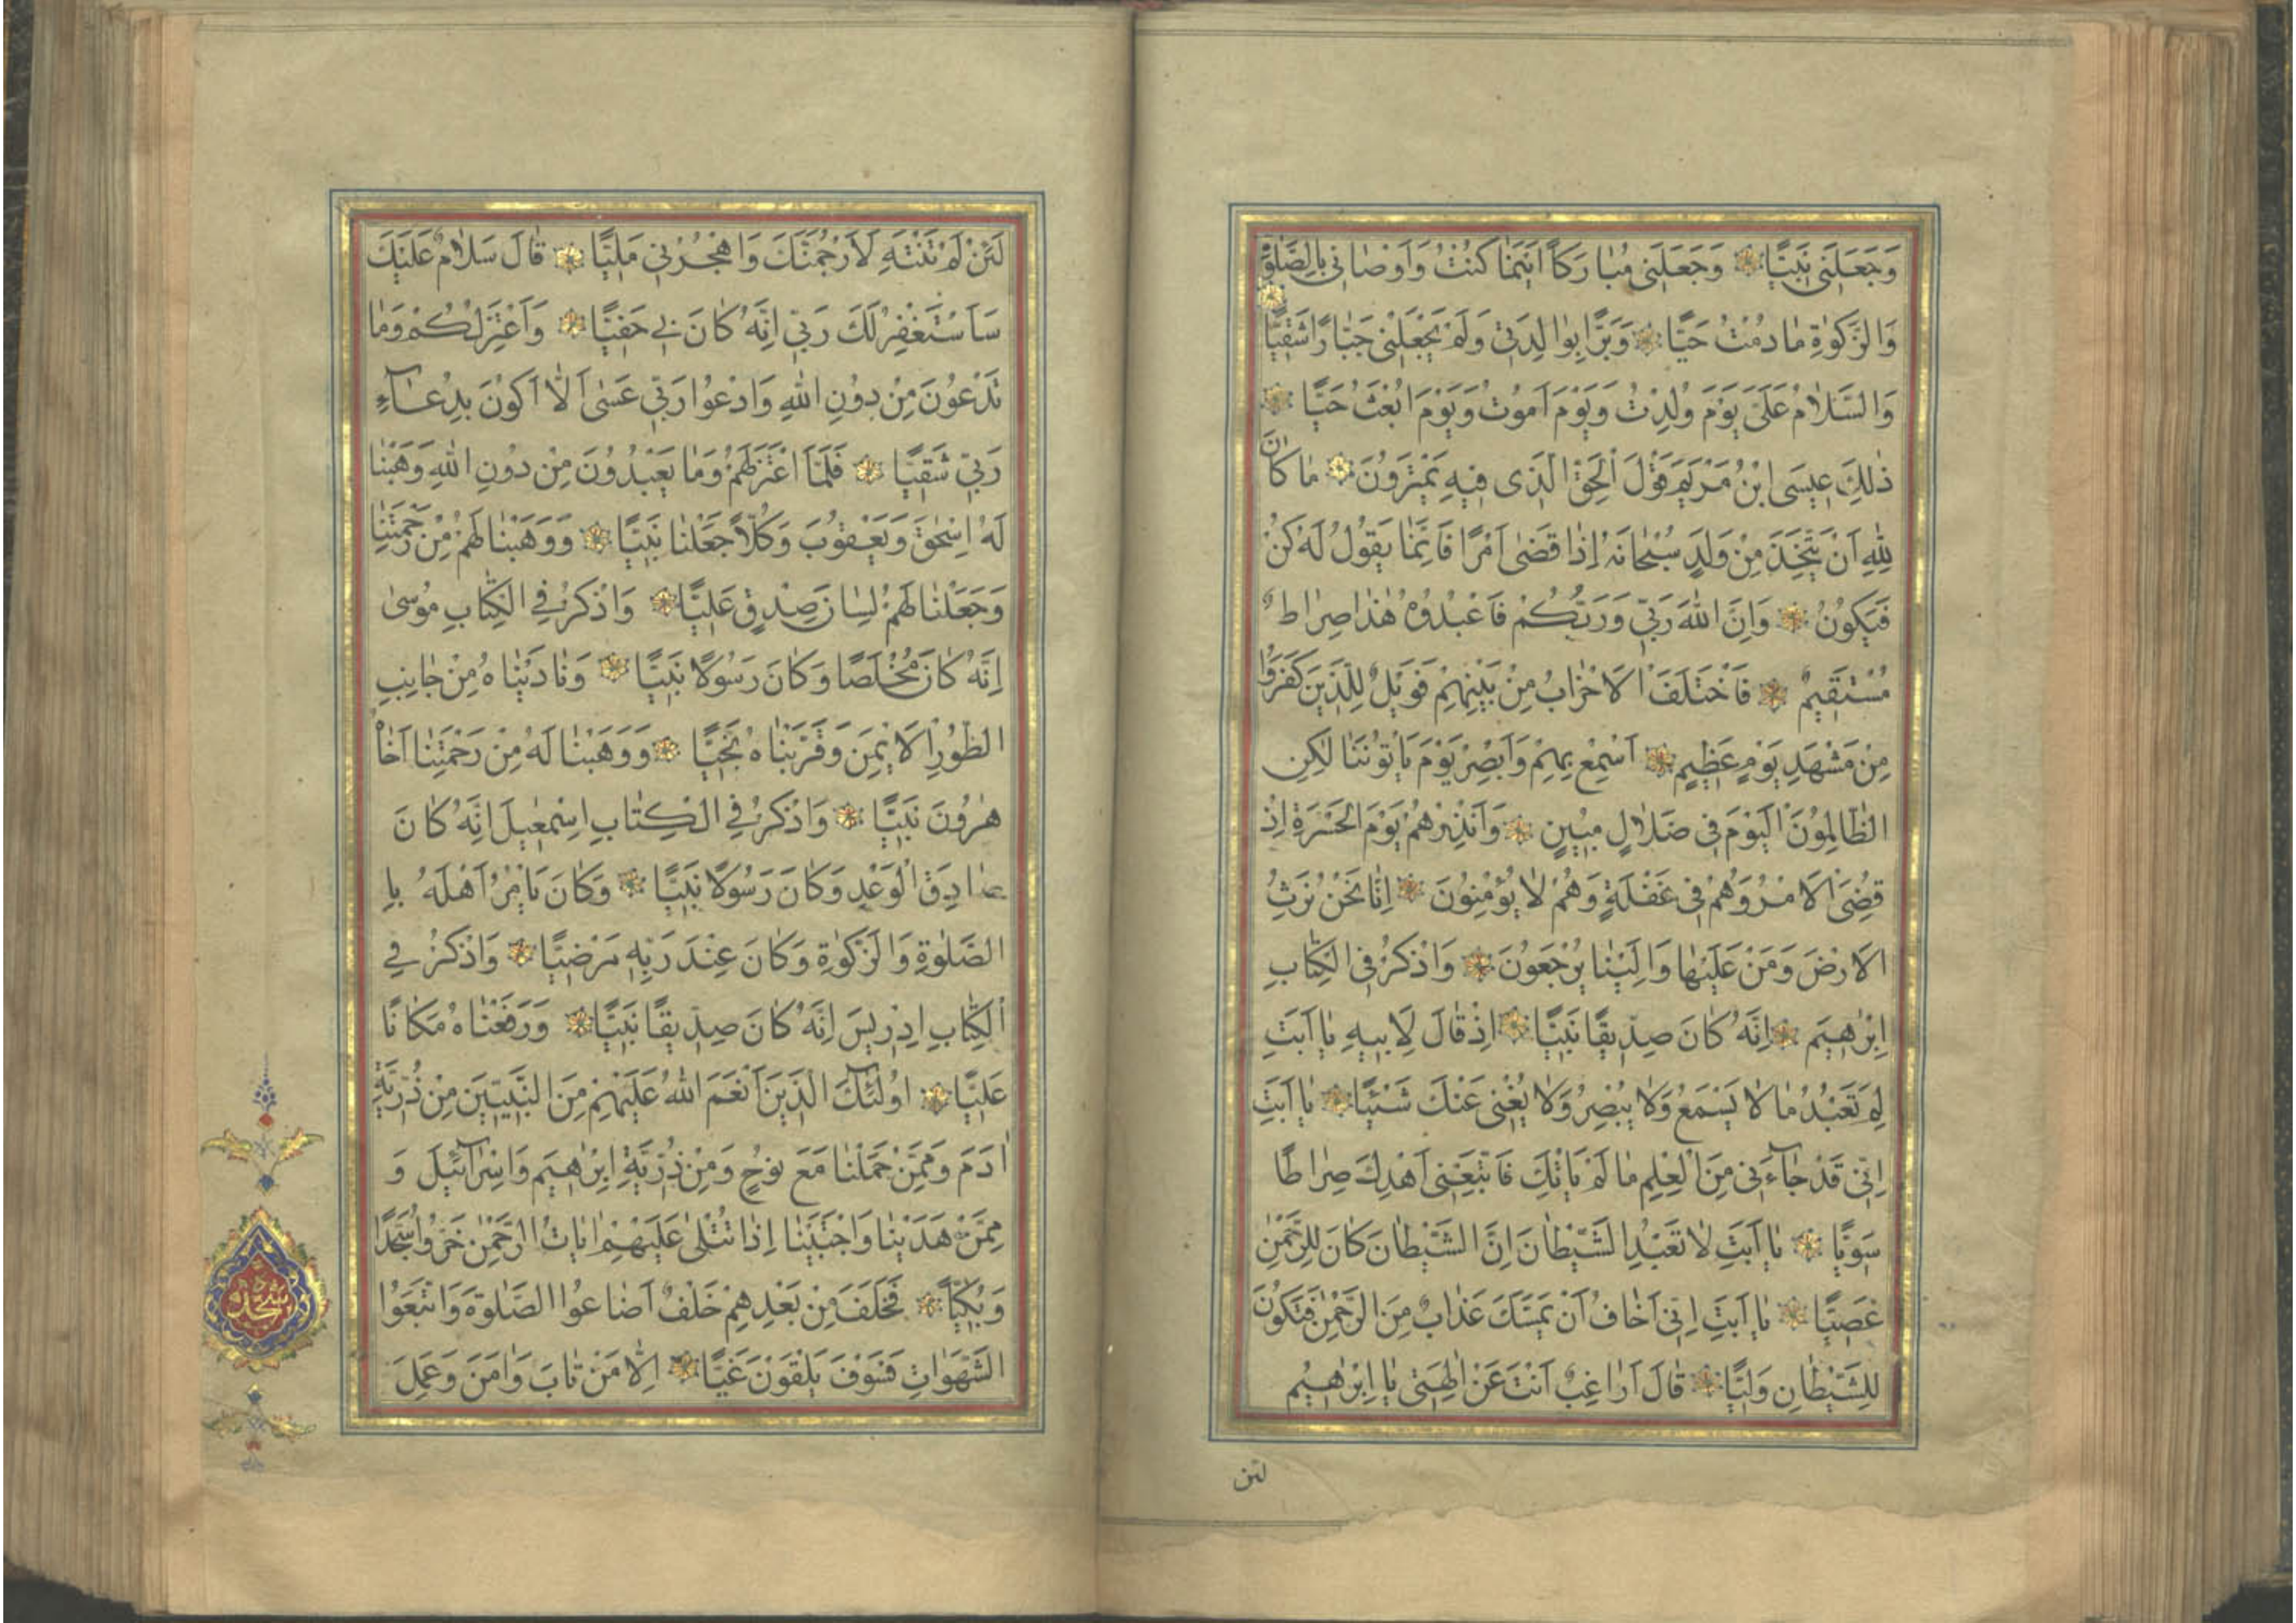 وَجَعَلَنِي نَبِيًّا وَجَعَلَنِي مُبَارَكًا اَيْنَمَا كُنْتُ وَاَوْصَانِي بِالصَّلٰوةِ
وَالزَّكٰوةِ مَا دُمْتُ حَيًّا وَبَرًّا بِوَالِدَتِي وَلَمْ يَجْعَلْنِي جَبَّارًا شَقِيًّا
وَالسَّلَامُ عَلَيَّ يَوْمَ وُلِدْتُ وَيَوْمَ اَمُوتُ وَيَوْمَ اُبْعَثُ حَيًّا
ذٰلِكَ عِيسَى ابْنُ مَرْيَمَ قَوْلَ الْحَقِّ الَّذِي فِيهِ يَمْتَرُونَ مَا كَانَ
لِلّٰهِ اَنْ يَتَّخِذَ مِنْ وَلَدٍ سُبْحَانَهُ اِذَا قَضٰى اَمْرًا فَاِنَّمَا يَقُولُ لَهُ كُنْ
فَيَكُونُ وَاِنَّ اللّٰهَ رَبِّي وَرَبُّكُمْ فَاعْبُدُوهُ هٰذَا صِرَاطٌ
مُسْتَقِيمٌ فَاخْتَلَفَ الْاَحْزَابُ مِنْ بَيْنِهِمْ فَوَيْلٌ لِلَّذِينَ كَفَرُوا
مِنْ مَشْهَدِ يَوْمٍ عَظِيمٍ اَسْمِعْ بِهِمْ وَاَبْصِرْ يَوْمَ يَاْتُونَنَا لٰكِنِ
الظَّالِمُونَ الْيَوْمَ فِي ضَلَالٍ مُبِينٍ وَاَنْذِرْهُمْ يَوْمَ الْحَسْرَةِ اِذْ
قُضِيَ الْاَمْرُ وَهُمْ فِي غَفْلَةٍ وَهُمْ لَا يُؤْمِنُونَ اِنَّا نَحْنُ نَرِثُ
الْاَرْضَ وَمَنْ عَلَيْهَا وَاِلَيْنَا يُرْجَعُونَ وَاذْكُرْ فِي الْكِتَابِ
اِبْرٰهِيمَ اِنَّهُ كَانَ صِدِّيقًا نَبِيًّا اِذْ قَالَ لِاَبِيهِ يَا اَبَتِ
لِمَ تَعْبُدُ مَا لَا يَسْمَعُ وَلَا يُبْصِرُ وَلَا يُغْنِي عَنْكَ شَيْئًا يَا اَبَتِ
اِنِّي قَدْ جَاءَنِي مِنَ الْعِلْمِ مَا لَمْ يَاْتِكَ فَاتَّبِعْنِي اَهْدِكَ صِرَاطًا
سَوِيًّا يَا اَبَتِ لَا تَعْبُدِ الشَّيْطَانَ اِنَّ الشَّيْطَانَ كَانَ لِلرَّحْمٰنِ
عَصِيًّا يَا اَبَتِ اِنِّي اَخَافُ اَنْ يَمَسَّكَ عَذَابٌ مِنَ الرَّحْمٰنِ فَتَكُونَ
لِلشَّيْطَانِ وَلِيًّا قَالَ اَرَاغِبٌ اَنْتَ عَنْ اٰلِهَتِي يَا اِبْرٰهِيمُ
لئن
لَئِنْ لَمْ تَنْتَهِ لَاَرْجُمَنَّكَ وَاهْجُرْنِي مَلِيًّا قَالَ سَلَامٌ عَلَيْكَ
سَاَسْتَغْفِرُ لَكَ رَبِّي اِنَّهُ كَانَ بِي حَفِيًّا وَاَعْتَزِلُكُمْ وَمَا
تَدْعُونَ مِنْ دُونِ اللّٰهِ وَاَدْعُوا رَبِّي عَسٰى اَلَّا اَكُونَ بِدُعَاءِ
رَبِّي شَقِيًّا فَلَمَّا اعْتَزَلَهُمْ وَمَا يَعْبُدُونَ مِنْ دُونِ اللّٰهِ وَهَبْنَا
لَهُ اِسْحٰقَ وَيَعْقُوبَ وَكُلًّا جَعَلْنَا نَبِيًّا وَوَهَبْنَا لَهُمْ مِنْ رَحْمَتِنَا
وَجَعَلْنَا لَهُمْ لِسَانَ صِدْقٍ عَلِيًّا وَاذْكُرْ فِي الْكِتَابِ مُوسٰى
اِنَّهُ كَانَ مُخْلَصًا وَكَانَ رَسُولًا نَبِيًّا وَنَادَيْنَاهُ مِنْ جَانِبِ
الطُّورِ الْاَيْمَنِ وَقَرَّبْنَاهُ نَجِيًّا وَوَهَبْنَا لَهُ مِنْ رَحْمَتِنَا اَخَاهُ
هٰرُونَ نَبِيًّا وَاذْكُرْ فِي الْكِتَابِ اِسْمٰعِيلَ اِنَّهُ كَانَ
صَادِقَ الْوَعْدِ وَكَانَ رَسُولًا نَبِيًّا وَكَانَ يَاْمُرُ اَهْلَهُ بِا
لصَّلٰوةِ وَالزَّكٰوةِ وَكَانَ عِنْدَ رَبِّهِ مَرْضِيًّا وَاذْكُرْ فِي
الْكِتَابِ اِدْرِيسَ اِنَّهُ كَانَ صِدِّيقًا نَبِيًّا وَرَفَعْنَاهُ مَكَانًا
عَلِيًّا اُولٰئِكَ الَّذِينَ اَنْعَمَ اللّٰهُ عَلَيْهِمْ مِنَ النَّبِيِّينَ مِنْ ذُرِّيَّةِ
اٰدَمَ وَمِمَّنْ حَمَلْنَا مَعَ نُوحٍ وَمِنْ ذُرِّيَّةِ اِبْرٰهِيمَ وَاِسْرَائِيلَ وَ
مِمَّنْ هَدَيْنَا وَاجْتَبَيْنَا اِذَا تُتْلٰى عَلَيْهِمْ اٰيَاتُ الرَّحْمٰنِ خَرُّوا سُجَّدًا
وَبُكِيًّا فَخَلَفَ مِنْ بَعْدِهِمْ خَلْفٌ اَضَاعُوا الصَّلٰوةَ وَاتَّبَعُوا
الشَّهَوَاتِ فَسَوْفَ يَلْقَوْنَ غَيًّا اِلَّا مَنْ تَابَ وَاٰمَنَ وَعَمِلَ
سجده